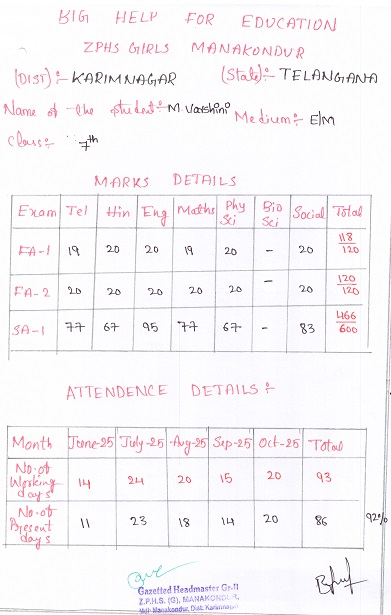 BIG HELP FOR EDUCATION
ZPHS GIRLS MANAKONDUR
(DIST):- KARIMNAGAR (State):- TELANGANA
Name of the student:- M. Varshini Medium:- E/M
Class:- 7th
MARKS DETAILS
Exam Tel Hin Eng Maths Phy Sci Bio Sci Social Total
FA-1 19 20 20 19 20 - 20 118/120
FA-2 20 20 20 20 20 - 20 120/120
SA-1 77 67 95 77 67 - 83 466/600
ATTENDENCE DETAILS:-
Month June-25 July-25 Aug-25 Sep-25 Oct-25 Total
No. of Working days 14 24 20 15 20 93
No. of Present days 11 23 18 14 20 86 92%
Gazetted Headmaster Gr-II
Z.P.H.S. (G), MANAKONDUR,
Mdl: Manakondur, Dist: Karimnagar